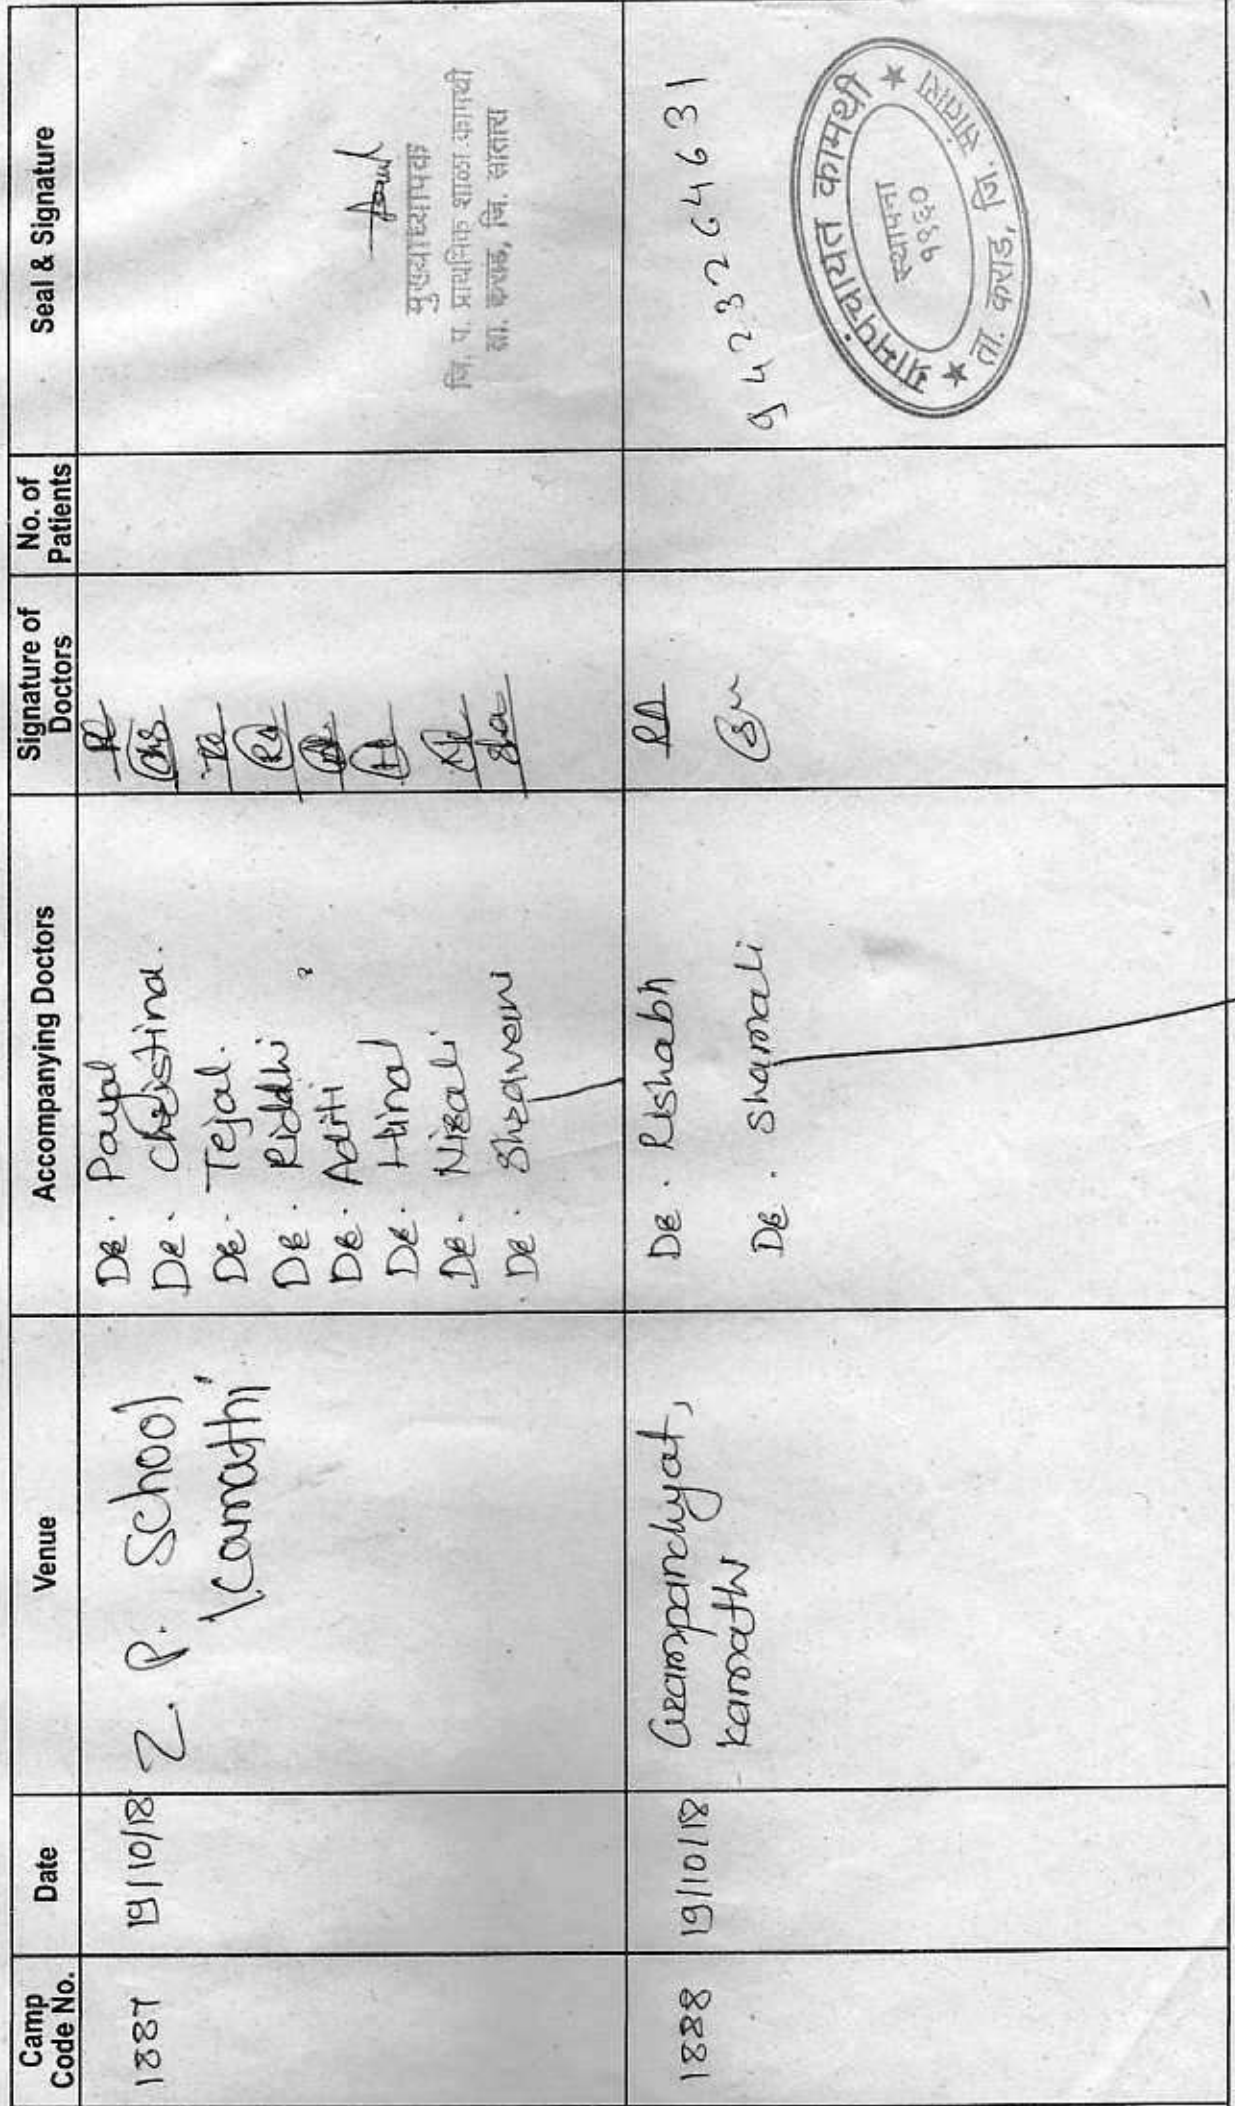 Camp Code No.
Date
Venue
Accompanying Doctors
Signature of Doctors
No. of Patients
Seal & Signature
1887
19/10/18
Z. P. School
Kamathi
Dr. Payal
Dr. Christina.
Dr. Tejal.
Dr. Riddhi
Dr. Aditi
Dr. Hinal
Dr. Nirali
Dr. Shravani
मुख्याध्यापक
जि. प. प्राथमिक शाळा कामथी
ता. कराड, जि. सातारा
1888
19/10/18
Grampanchyat,
Kamathi
Dr. Rishabh
Dr. Shamali
RA
9423264631
ग्रामपंचायत कामथी
स्थापना
१९६०
ता. कराड, जि. सातारा